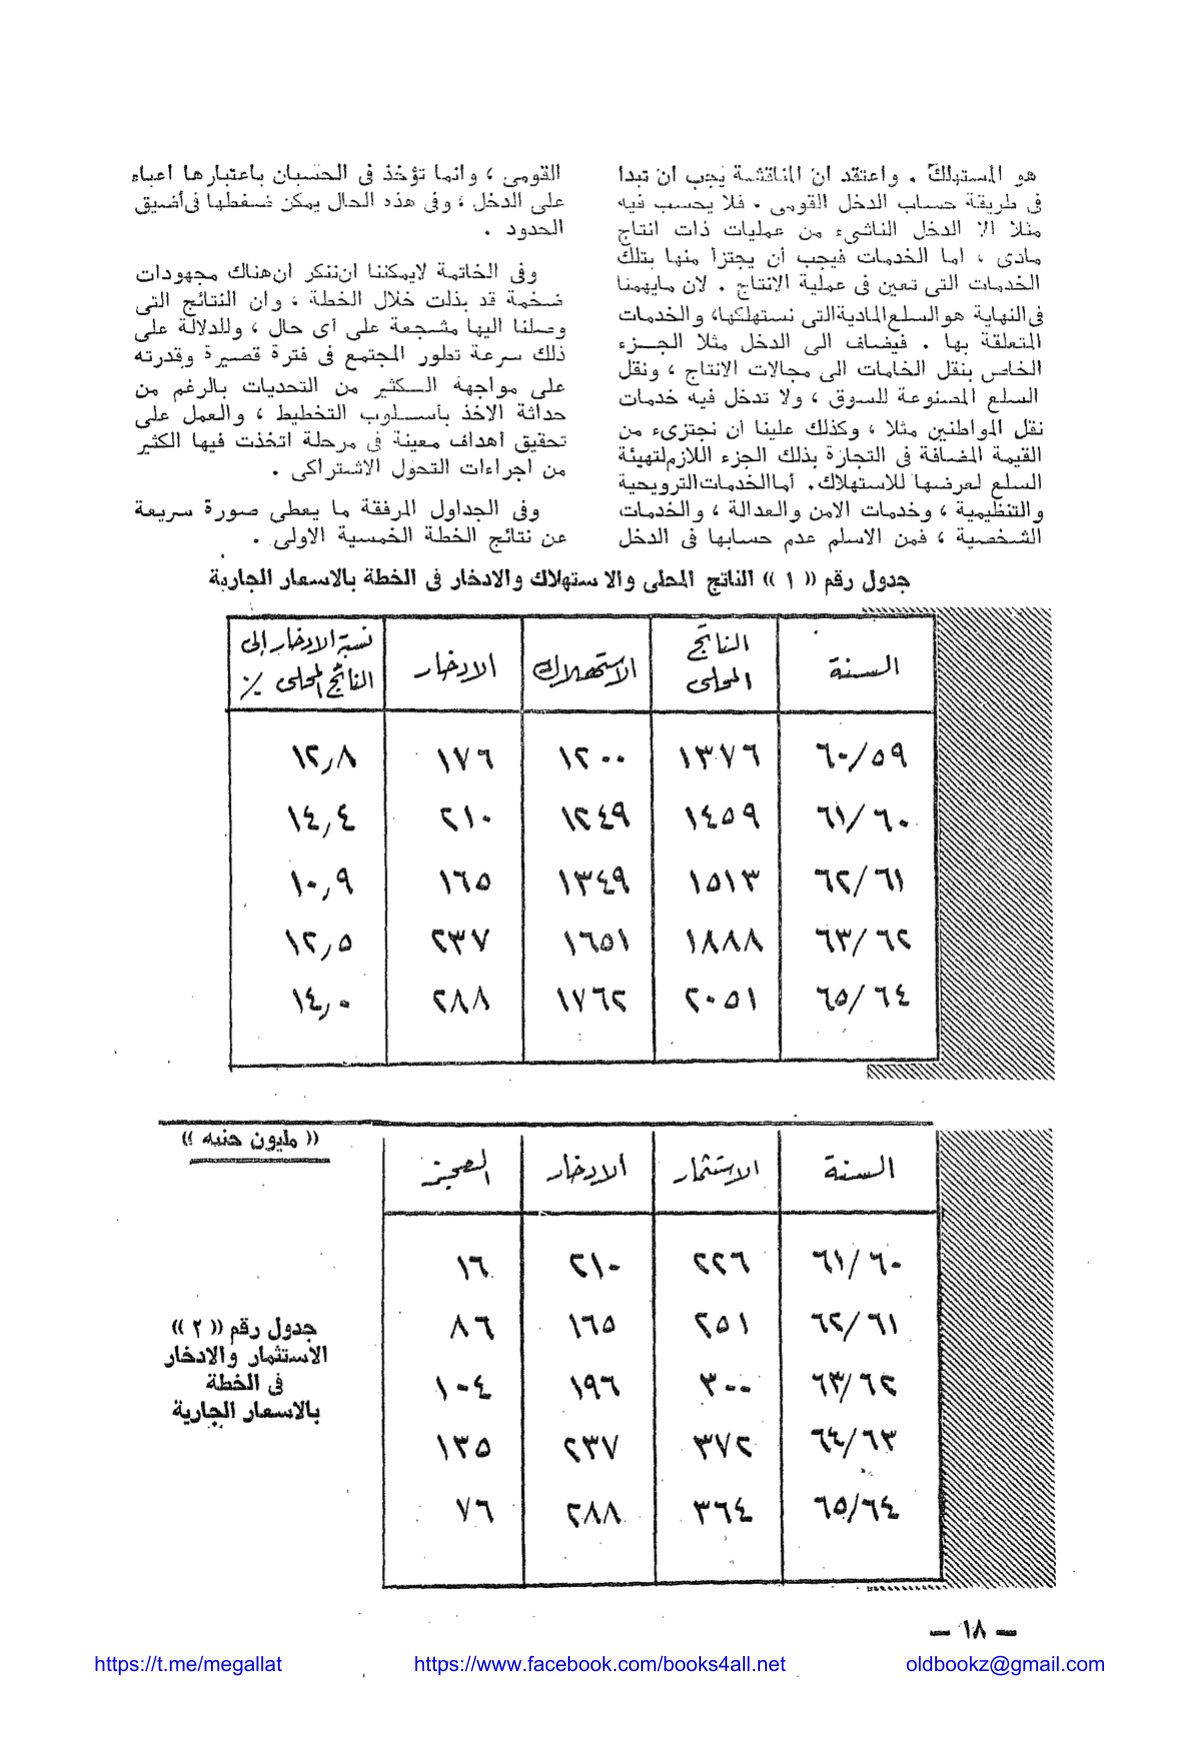 هو المستهلك . واعتقد ان المناقشة يجب ان تبدا
فى طريقة حساب الدخل القومى . فلا يحسب فيه
مثلا الا الدخل الناشىء من عمليات ذات انتاج
مادى ، اما الخدمات فيجب أن يجتزأ منها بتلك
الخدمات التى تعين فى عملية الانتاج . لان مايهمنا
فى النهاية هو السلع المادية التى نستهلكها، والخدمات
المتعلقة بها . فيضاف الى الدخل مثلا الجزء
الخاص بنقل الخامات الى مجالات الانتاج ، ونقل
السلع المصنوعة للسوق ، ولا تدخل فيه خدمات
نقل المواطنين مثلا ، وكذلك علينا ان نجتزىء من
القيمة المضافة فى التجارة بذلك الجزء اللازم لتهيئة
السلع لعرضها للاستهلاك. أما الخدمات الترويحية
والتنظيمية ، وخدمات الامن والعدالة ، والخدمات
الشخصية ، فمن الاسلم عدم حسابها فى الدخل
القومى ، وانما تؤخذ فى الحسبان باعتبارها اعباء
على الدخل ، وفى هذه الحال يمكن ضغطها فى أضيق
الحدود .
وفى الخاتمة لايمكننا ان ننكر ان هناك مجهودات
ضخمة قد بذلت خلال الخطة ، وان النتائج التى
وصلنا اليها مشجعة على أى حال ، وللدلالة على
ذلك سرعة تطور المجتمع فى فترة قصيرة وقدرته
على مواجهة الكثير من التحديات بالرغم من
حداثة الاخذ بأسلوب التخطيط ، والعمل على
تحقيق أهداف معينة فى مرحلة اتخذت فيها الكثير
من اجراءات التحول الاشتراكى .
وفى الجداول المرفقة ما يعطى صورة سريعة
عن نتائج الخطة الخمسية الاولى .
جدول رقم (( ١ )) الناتج المحلى والاستهلاك والادخار فى الخطة بالاسعار الجارية
السنة الناتج المحلى الاستهلاك الادخار نسبة الادخار إلى الناتج المحلى ٪
٦٠/٥٩ ١٣٧٦ ١٢٠٠ ١٧٦ ١٢٫٨
٦١/٦٠ ١٤٥٩ ١٢٤٩ ٢١٠ ١٤٫٤
٦٢/٦١ ١٥١٣ ١٣٤٩ ١٦٥ ١٠٫٩
٦٣/٦٢ ١٨٨٨ ١٦٥١ ٢٣٧ ١٢٫٥
٦٥/٦٤ ٢٠٥١ ١٧٦٢ ٢٨٨ ١٤٫٠
(( مليون جنيه ))
السنة الاستثمار الادخار العجز
٦١/٦٠ ٢٢٦ ٢١٠ ١٦
٦٢/٦١ ٢٥١ ١٦٥ ٨٦
٦٣/٦٢ ٣٠٠ ١٩٦ ١٠٤
٦٤/٦٣ ٣٧٢ ٢٣٧ ١٣٥
٦٥/٦٤ ٣٦٤ ٢٨٨ ٧٦
جدول رقم (( ٢ ))
الاستثمار والادخار
فى الخطة
بالاسعار الجارية
– ١٨ –
https://t.me/megallat
https://www.facebook.com/books4all.net
oldbookz@gmail.com